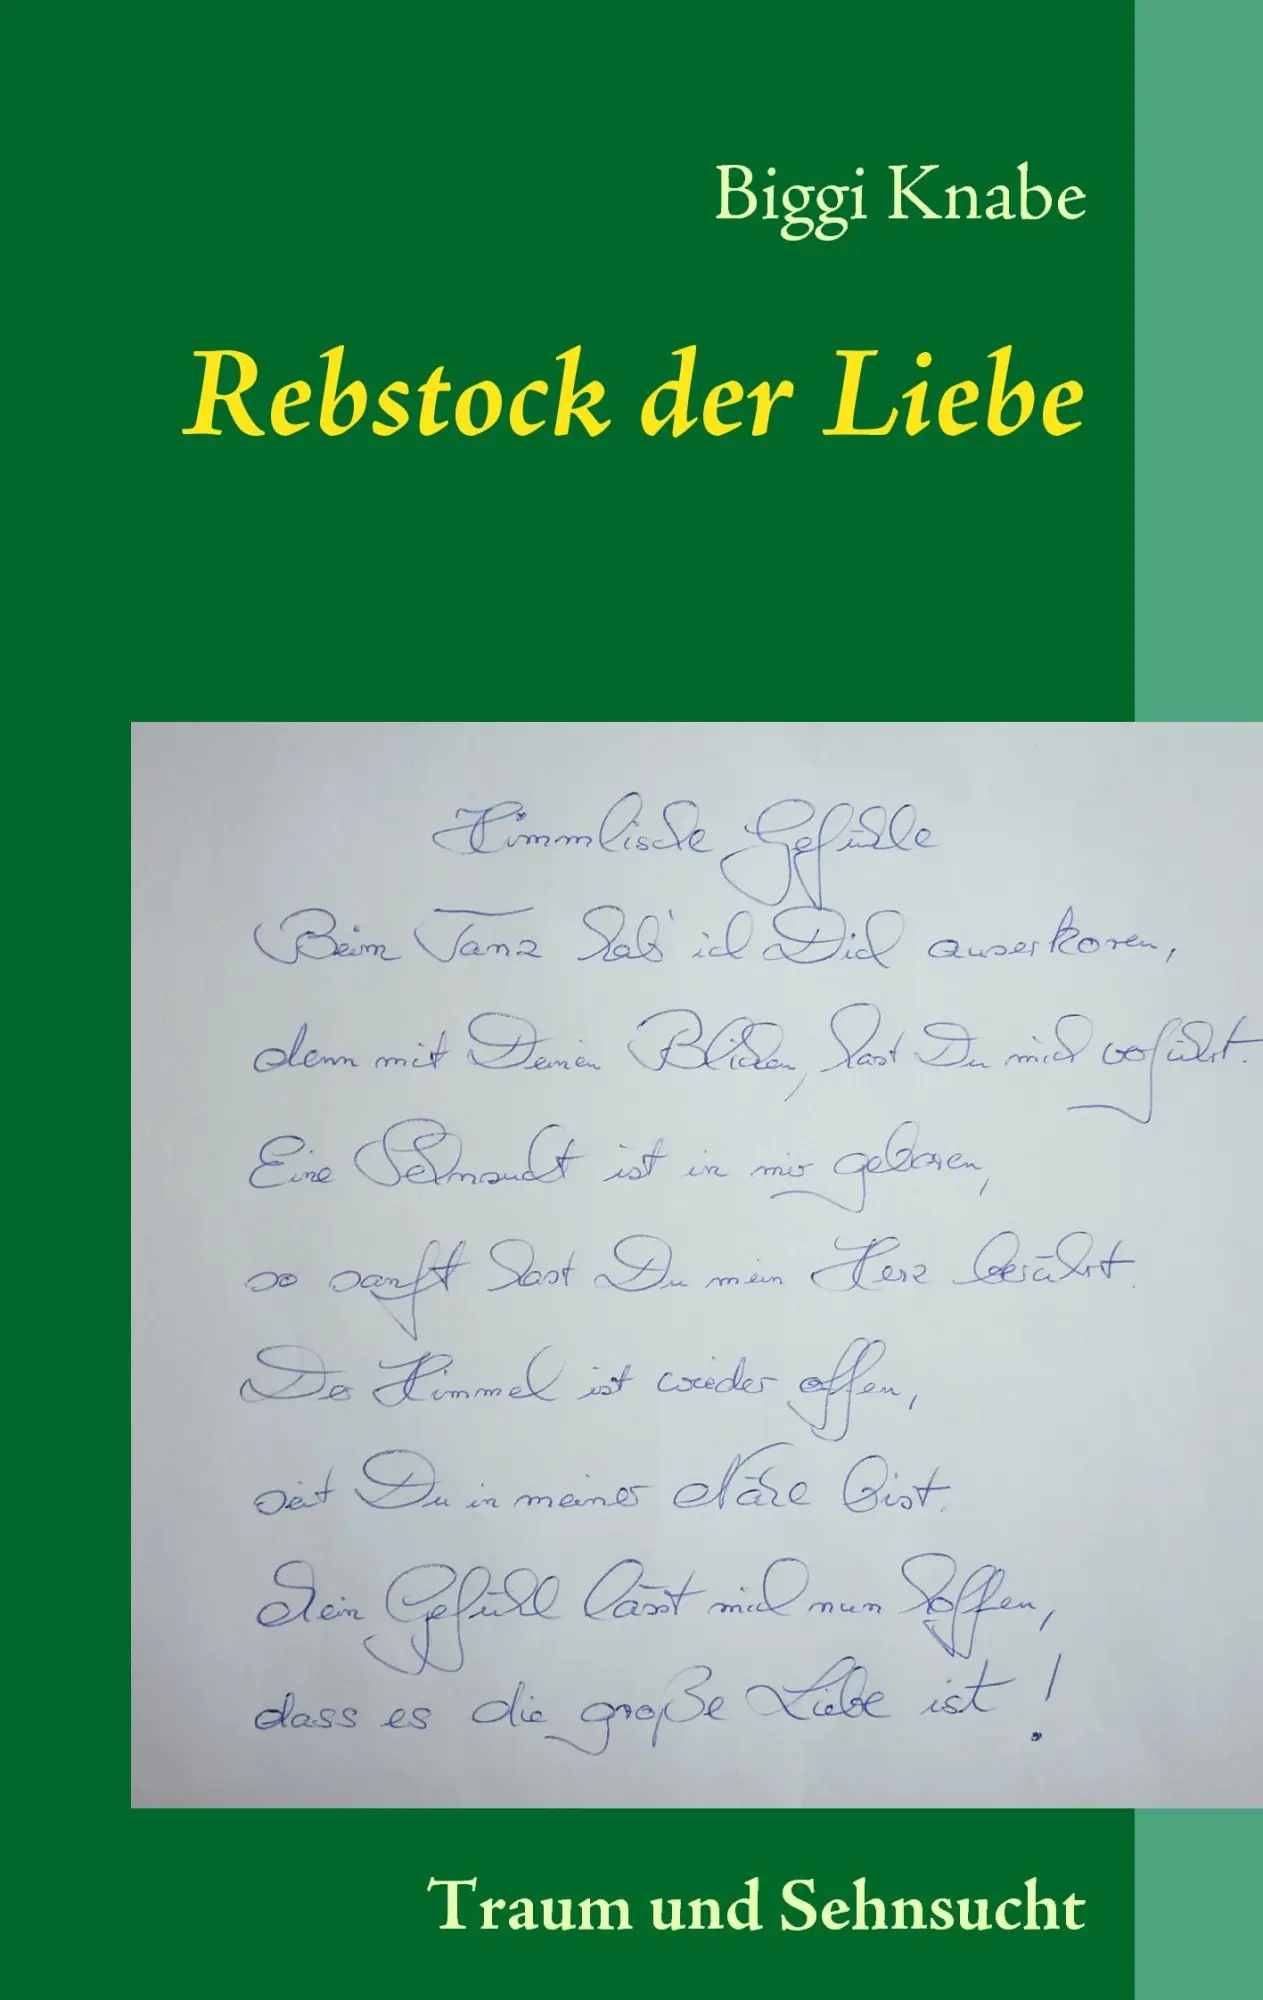 Biggi Knabe
Rebstock der Liebe
Himmlische Gefühle
Beim Tanz hab' ich Dich auserkoren,
denn mit Deinen Blicken, hast Du mich verführt.
Eine Sehnsucht ist in mir geboren,
so sanft hast Du mein Herz berührt.
Der Himmel ist wieder offen,
seit Du in meiner Nähe bist.
Dein Gefühl lässt mich nun hoffen,
dass es die große Liebe ist!
Traum und Sehnsucht